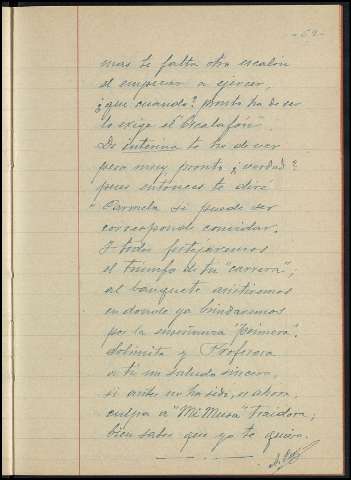 - 62 -
mas te falta otro escalón
al empezar a ejercer,
¿que cuando? pronto ha de ser
lo exige el "Escalafón".
De interina te he de ver
pero muy pronto ¿verdad?
pues entónces te diré
Carmela si puede ser
corresponde convidar.
Y todos festejaremos
el triunfo de tu "carrera";
al banquete asistiremos
en donde ya brindaremos
por la enseñanza "primera".
y Profesora
a ti un saludo sincero,
si antes no ha sido, es ahora,
culpa a "Mi Musa" traidora;
bien sabes que yo te quiero.